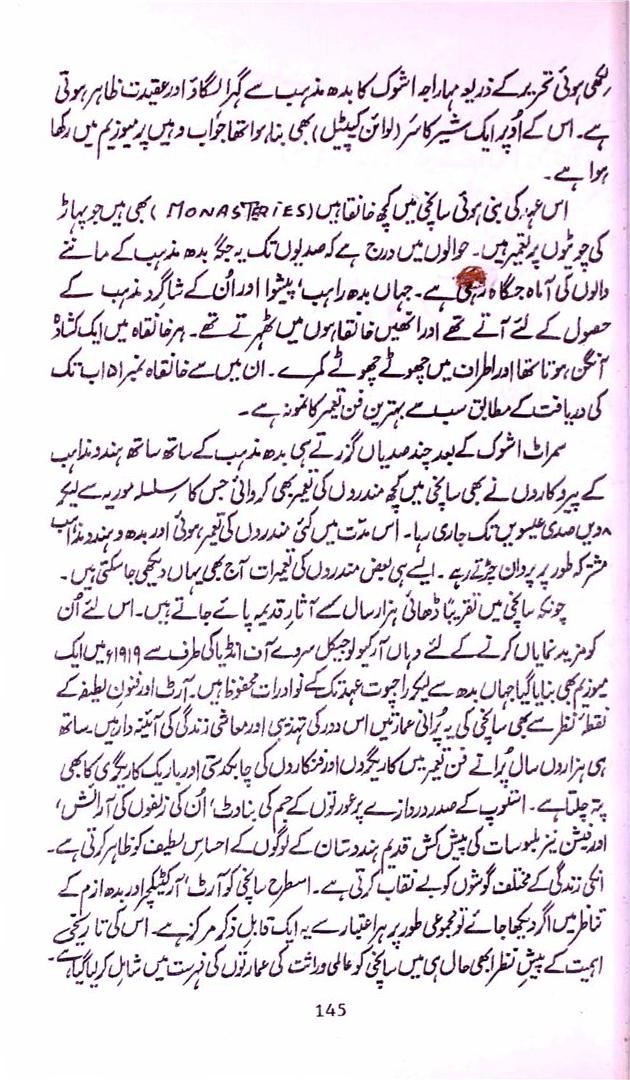 لکھی ہوئی تحریر کے ذریعہ مہاراجہ اشوک کا بدھ مذہب سے گہرا لگاؤ اور عقیدت ظاہر ہوتی
ہے۔ اس کے اُوپر ایک شیر کا سَر (لوائن کیپٹیل) بھی بنا ہوا تھا جو اب وہیں پر میوزیم میں رکھا
ہوا ہے۔
اس عہد کی بنی ہوئی سانچی میں کچھ خانقاہیں (MONASTERIES) بھی ہیں جو پہاڑ
کی چوٹیوں پر تعمیر ہیں۔ حوالوں میں درج ہے کہ صدیوں تک یہ جگہ بدھ مذہب کے ماننے
والوں کی آماہ جگاہ رہی ہے۔ جہاں بدھ راہب، پیشوا اور اُن کے شاگرد مذہب کے
حصول کے لئے آتے تھے اور انھیں خانقاہوں میں ٹھہرتے تھے۔ ہر خانقاہ میں ایک کشادہ
آنگن ہوتا تھا اور اطراف میں چھوٹے چھوٹے کمرے۔ ان میں سے خانقاہ نمبر ۵۱ اب تک
کی دریافت کے مطابق سب سے بہترین فن تعمیر کا نمونہ ہے۔
سمراٹ اشوک کے بعد چند صدیاں گزرتے ہی بدھ مذہب کے ساتھ ساتھ ہندو مذاہب
کے پیروکاروں نے بھی سانچی میں کچھ مندروں کی تعمیر بھی کروائی جس کا سلسلہ موریہ سے لیکر
۸ویں صدی عیسویں تک جاری رہا۔ اس مدّت میں کئی مندروں کی تعمیر ہوئی اور بدھ و ہندو مذاہب
مشترکہ طور پر پروان چڑتے رہے۔ ایسے ہی بعض مندروں کی تعمیرات آج بھی یہاں دیکھی جا سکتی ہیں۔
چونکہ سانچی میں تقریباً ڈھائی ہزار سال کے آثارِ قدیم پائے جاتے ہیں۔ اس لئے اُن
کو مزید نمایاں کرنے کے لئے وہاں آرکیولوجیکل سروے آف انڈیا کی طرف سے ۱۹۱۹ء میں ایک
میوزیم بھی بنایا گیا جہاں بدھ سے لیکر راجپوت عہد تک کے نوادرات محفوظ ہیں۔ آرٹ اور فنونِ لطیفہ کے
نقطۂ نظر سے بھی سانچی کی یہ پُرانی عمارتیں اس دور کی تہذیبی اور معاشی زندگی کی آئینہ دار ہیں۔ ساتھ
ہی ہزاروں سال پُرانے فن تعمیر میں کاریگروں اور فنکاروں کی چابکدستی اور باریک کاریگری کا بھی
پتہ چلتا ہے۔ استوپ کے صدر دروازے پر عورتوں کے جسم کی بناوٹ، اُن کی زلفوں کی آرائش،
اور فیشن نیز ملبوسات کی پیش کش قدیم ہندوستان کے لوگوں کے احساسِ لطیف کو ظاہر کرتی ہے۔
انکی زندگی کے مختلف گوشوں کو بے نقاب کرتی ہے۔ اسطرح سانچی کو آرٹ، آرکٹیکچر اور بدھ ازم کے
تناظر میں اگر دیکھا جائے تو مجموعی طور پر ہر اعتبار سے یہ ایک قابلِ ذکر مرکز ہے۔ اس کی تاریخی
اہمیت کے پیشِ نظر ابھی حال ہی میں سانچی کو عالمی وراثت کی عمارتوں کی فہرست میں شامل کر لیا گیا ہے۔
145